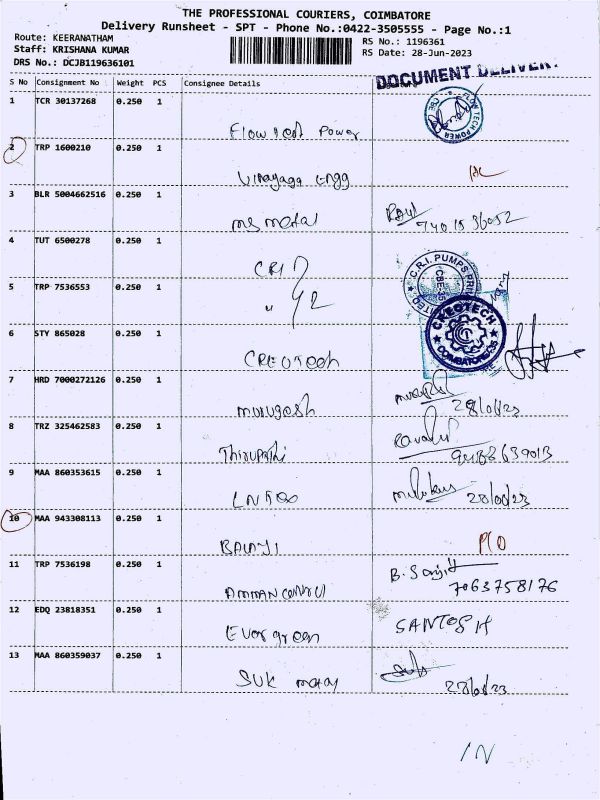 THE PROFESSIONAL COURIERS, COIMBATORE
Delivery Runsheet - SPT - Phone No.:0422-3505555 - Page No.:1
Route: KEERANATHAM
RS No.: 1196361
Staff: KRISHANA KUMAR
RS Date: 28-Jun-2023
DRS No.: DCJB119636101
DOCUMENT
S No Consignment No Weight PCS Consignee Details
1 TCR 30137268 0.250 1
Power
FLOW TECH POWER
2 TRP 1600210 0.250 1
Vinayaga Engg
3 BLR 5004662516 0.250 1
ms metal
4 TUT 6500278 0.250 1
CRI
C.R.I. PUMPS
5 TRP 7536553 0.250 1
"
6 STY 865028 0.250 1
CREOTech
CREOTECH
COIMBATORE-35
7 HRD 7000272126 0.250 1
murugesh
8 TRZ 325462583 0.250 1
Thirupathi
9 MAA 860353615 0.250 1
10 MAA 943308113 0.250 1
BALAJI
11 TRP 7536198 0.250 1
7063758176
12 EDQ 23818351 0.250 1
Evergreen SANTOSH
13 MAA 860359037 0.250 1
SUK